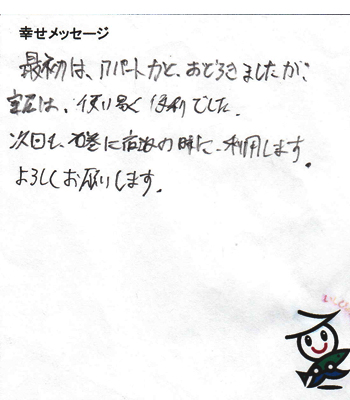 幸せメッセージ
最初は、アパートかと、おどろきましたが、
室は、使い易く便利でした。
次回も、石巻に宿泊の時に、利用します。
よろしくお願いします。